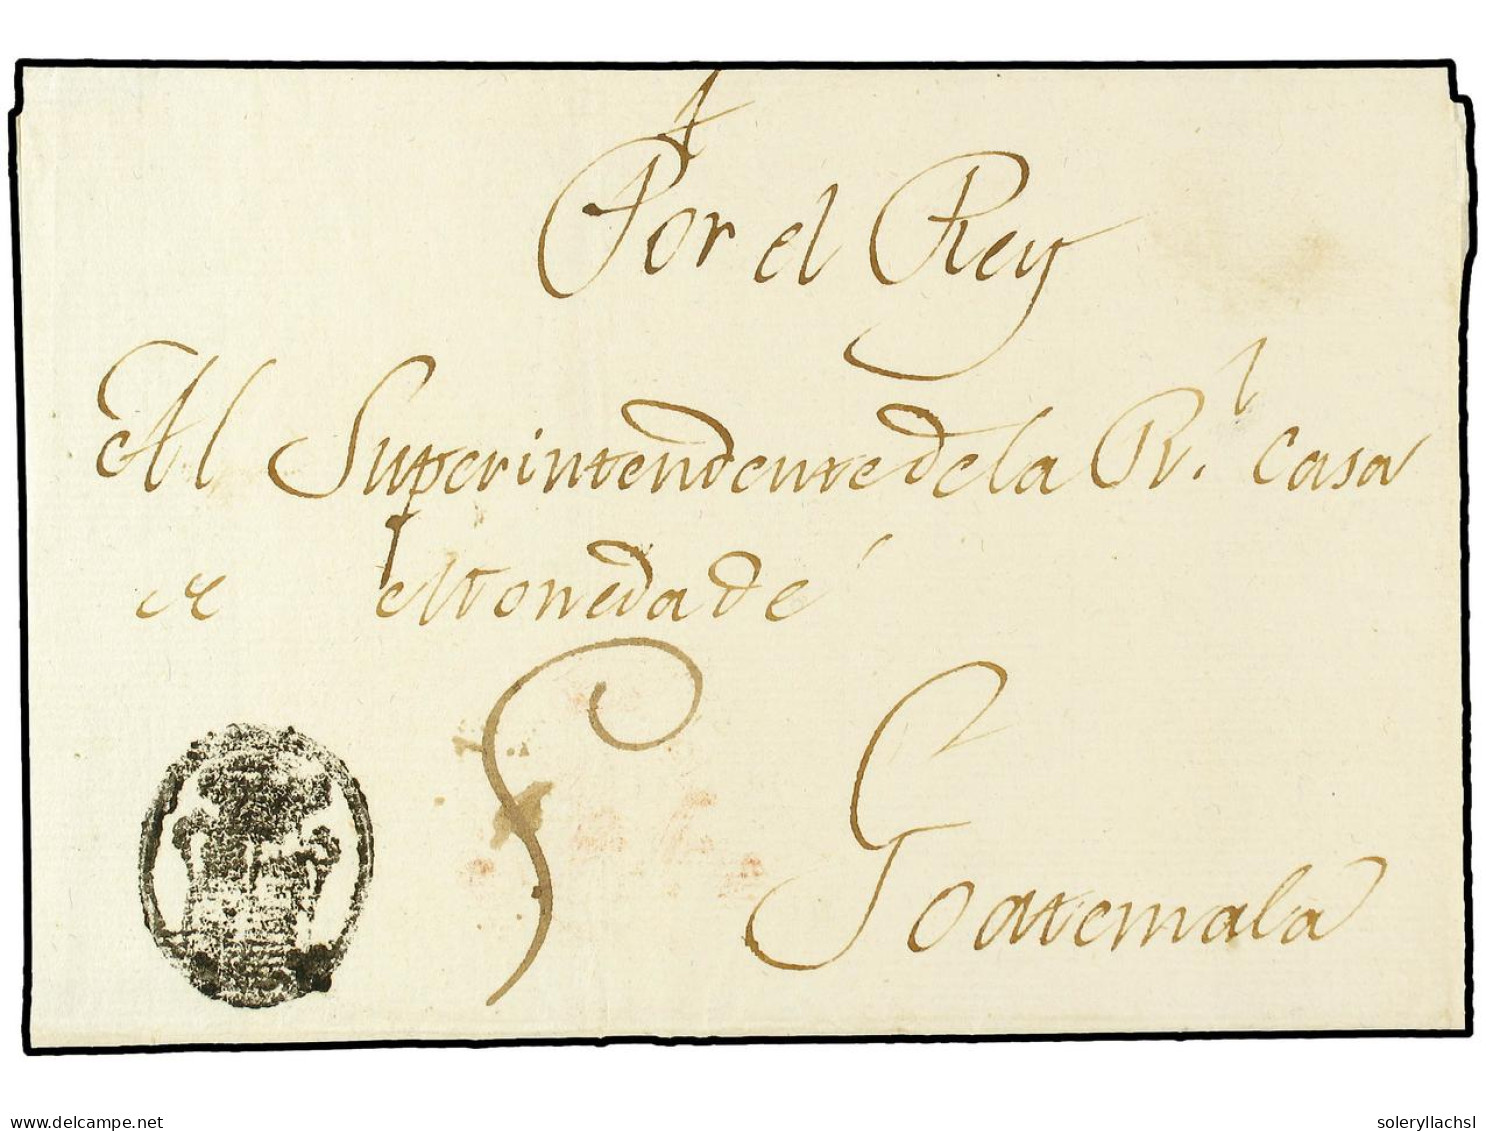 Por el Rey
Al Superintendente de la Rl. Casa
de Moneda de
Goatemala
delcampe.net
soleryllachsl